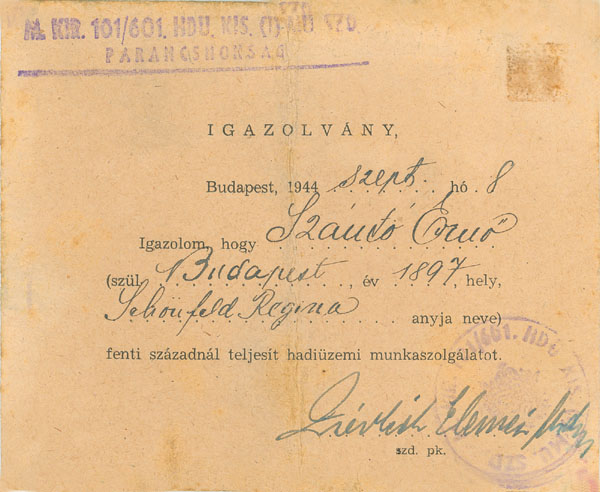 M. KIR. 101/601. HDU. KIS.
PARANCSNOKSÁG
IGAZOLVÁNY,
Budapest, 1944 szept. hó 8
Igazolom, hogy Szántó Ernő
(szül. Budapest, év 1897, hely,
Schönfeld Regina anyja neve)
fenti századnál teljesít hadiüzemi munkaszolgálatot.
Elemér
szd. pk.
601. HDU. KIS